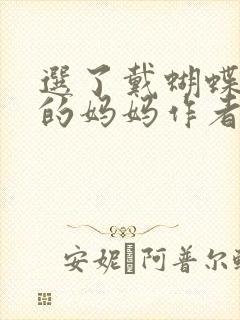 選了戴蝴蝶
的妈妈作者
安妮阿普尔